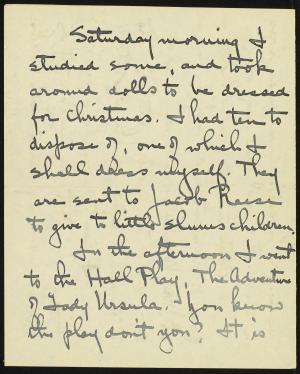 Saturday morning I
studied some, and took
around dolls to be dressed
for Christmas. I had ten to
dispose of, one of which I
shall dress myself. They
are sent to Jacob Reese
to give to little slums children.
In the afternoon I went
to the Hall Play, The Adventure
of Lady Ursula. You know
the play don't you? It is